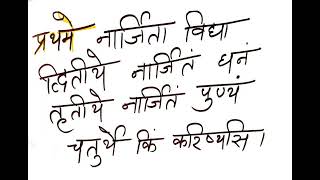 प्रथमे नार्जिता विद्या
द्वितीये नार्जितं धनं
तृतीये नार्जितं पुण्यं
चतुर्थे किं करिष्यसि।